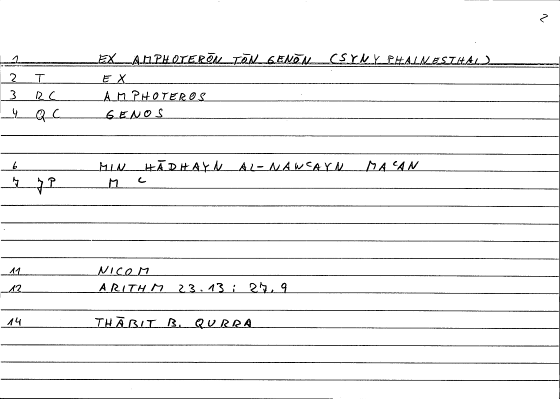 2
1 EX AMPHOTERŌN TŌN GENŌN (SYNYPHAINESTHAI)
2 T EX
3 RC AMPHOTEROS
4 QC GENOS
6 MIN HĀDHAYN AL-NAWᶜAYN MAᶜAN
7 JP M ᶜ
11 NICOM
12 ARITHM 23.13; 27.9
14 THĀBIT B. QURRA